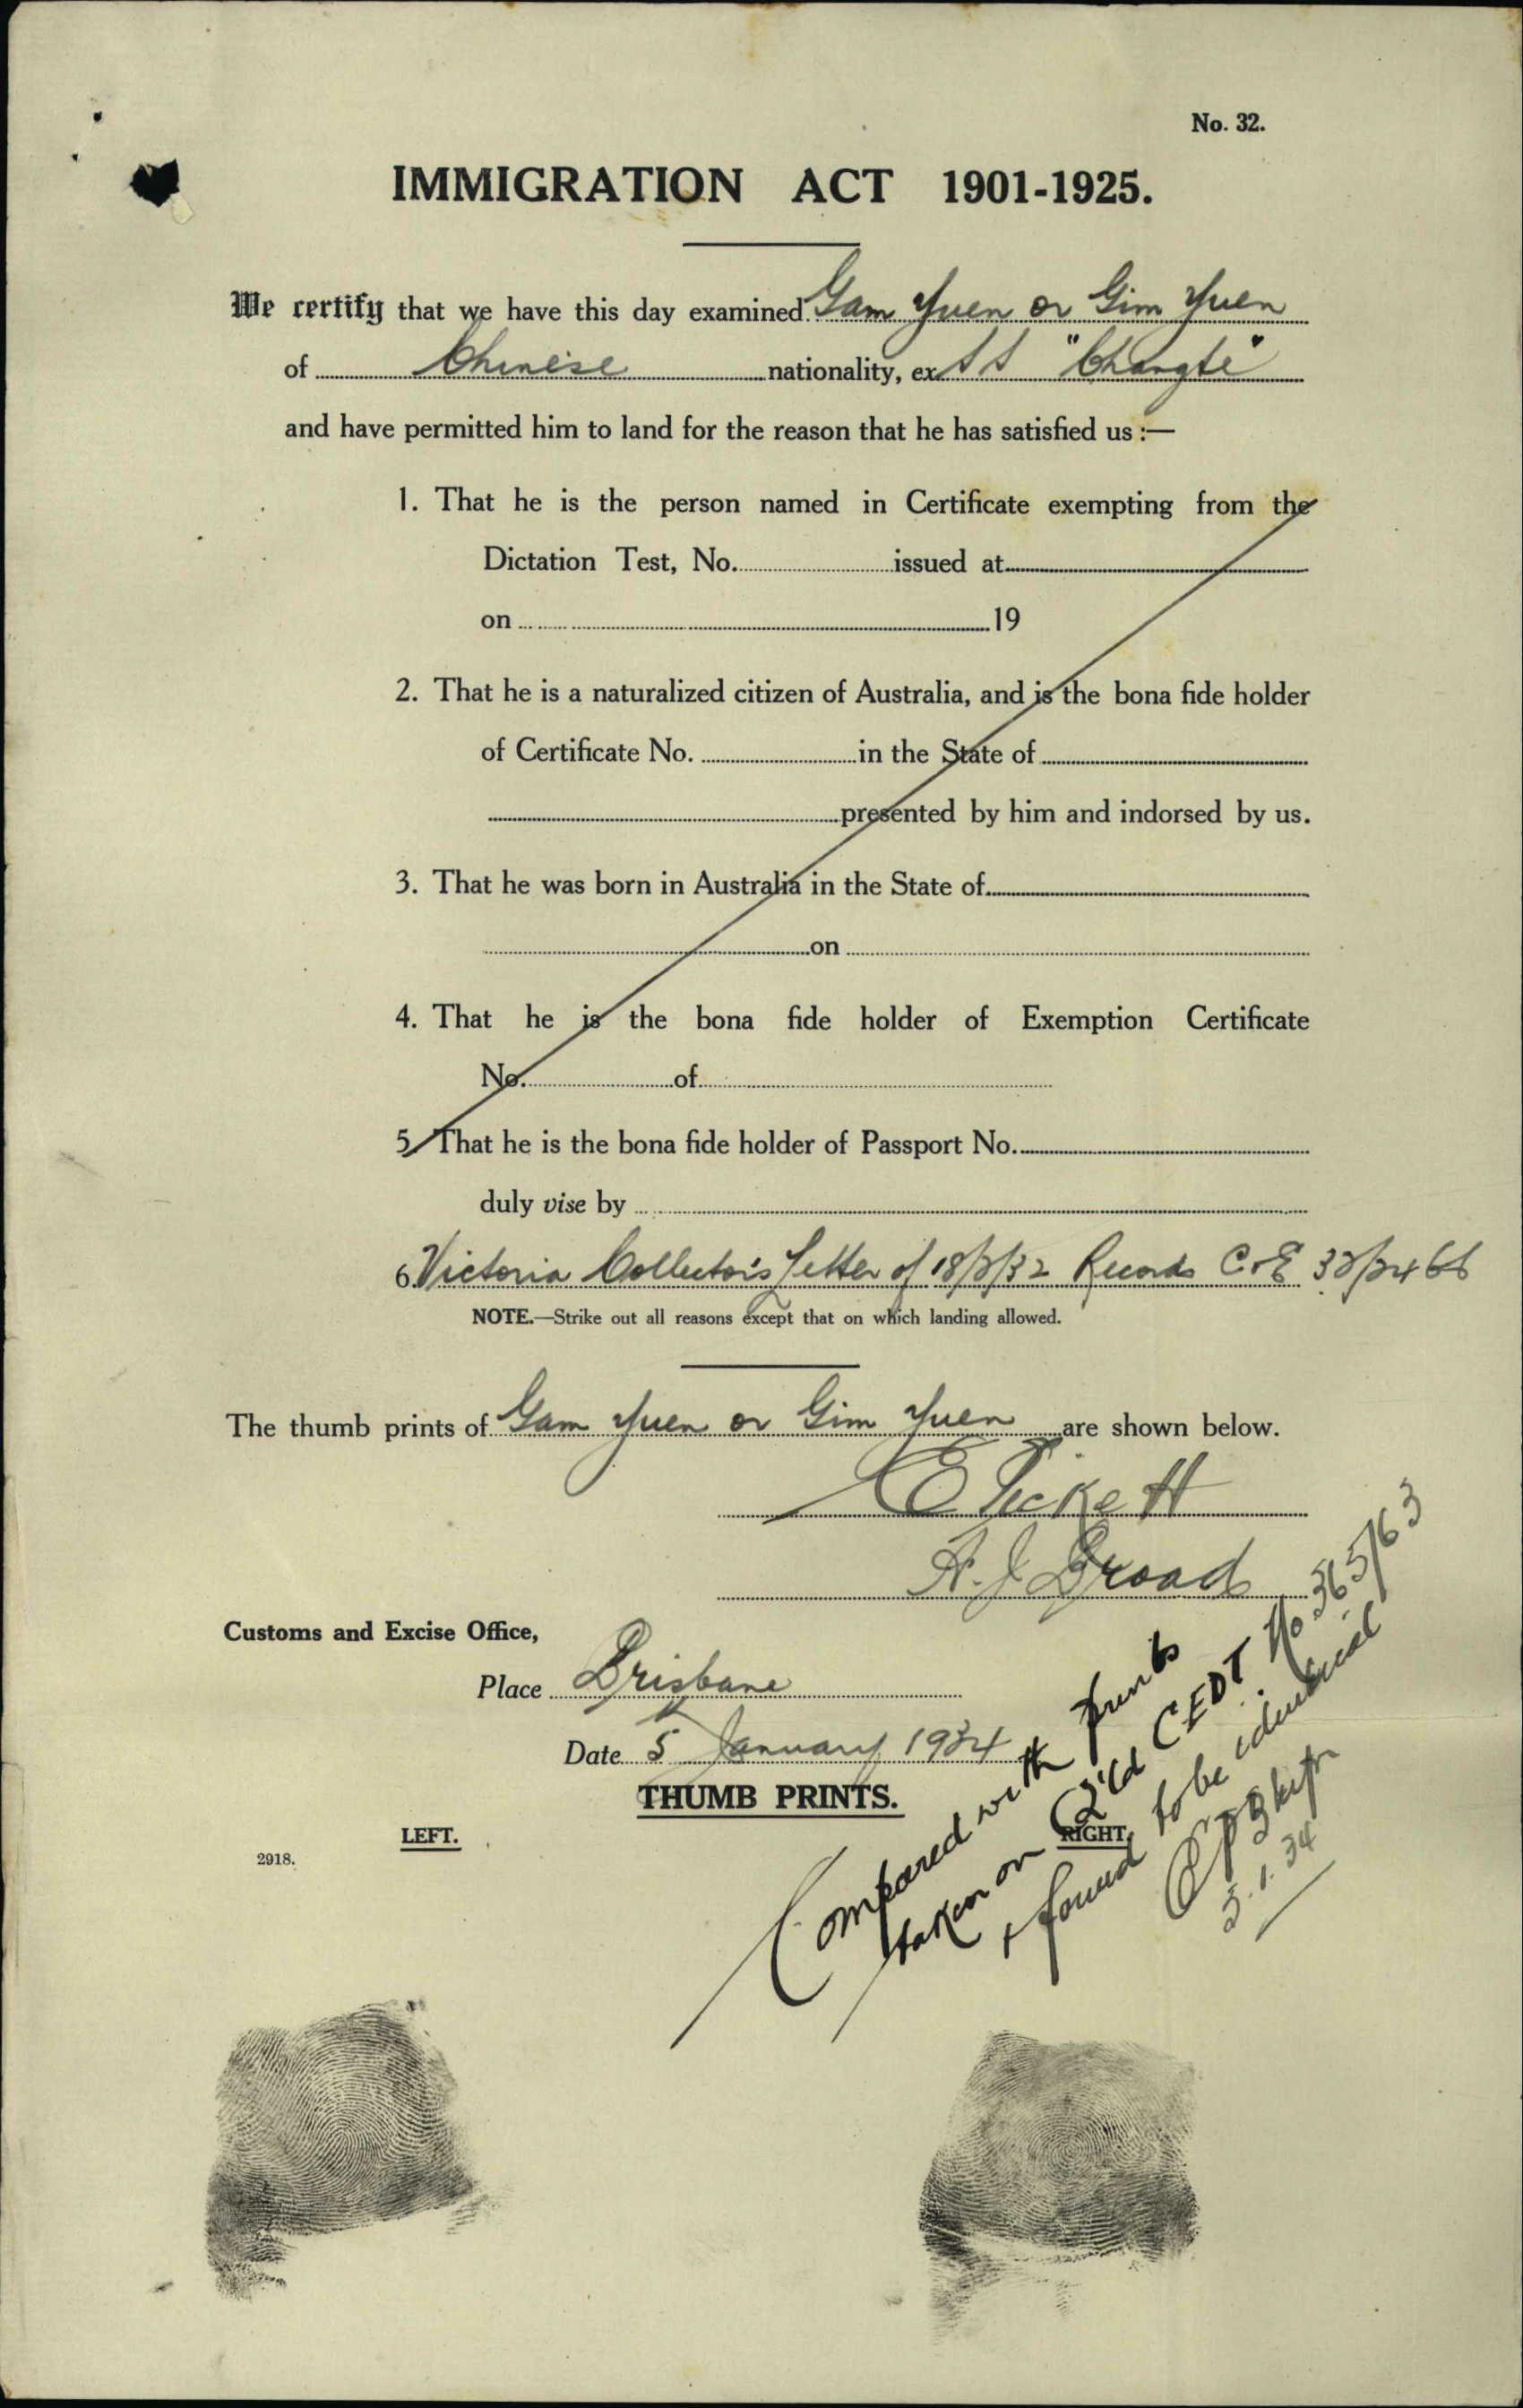 No. 32.
IMMIGRATION ACT 1901-1925.
We certify that we have this day examined Gam Yuen or Gim Yuen
of Chinese nationality, ex S S "Changte"
and have permitted him to land for the reason that he has satisfied us :—
1. That he is the person named in Certificate exempting from the
Dictation Test, No. issued at
on 19
2. That he is a naturalized citizen of Australia, and is the bona fide holder
of Certificate No. in the State of
presented by him and indorsed by us.
3. That he was born in Australia in the State of
on
4. That he is the bona fide holder of Exemption Certificate
No. of
5. That he is the bona fide holder of Passport No.
duly vise by
6 Victoria Collector's Letter of Records C & E
NOTE.—Strike out all reasons except that on which landing allowed.
The thumb prints of Gam Yuen or Gim Yuen are shown below.
E Pickett
A. J. Broad
Customs and Excise Office,
Place Brisbane
Date 5 January 1934
THUMB PRINTS.
LEFT.
RIGHT.
2918.
Compared with prints
taken on Q'ld CEDT No 565/63
& found to be identical
5.1.34